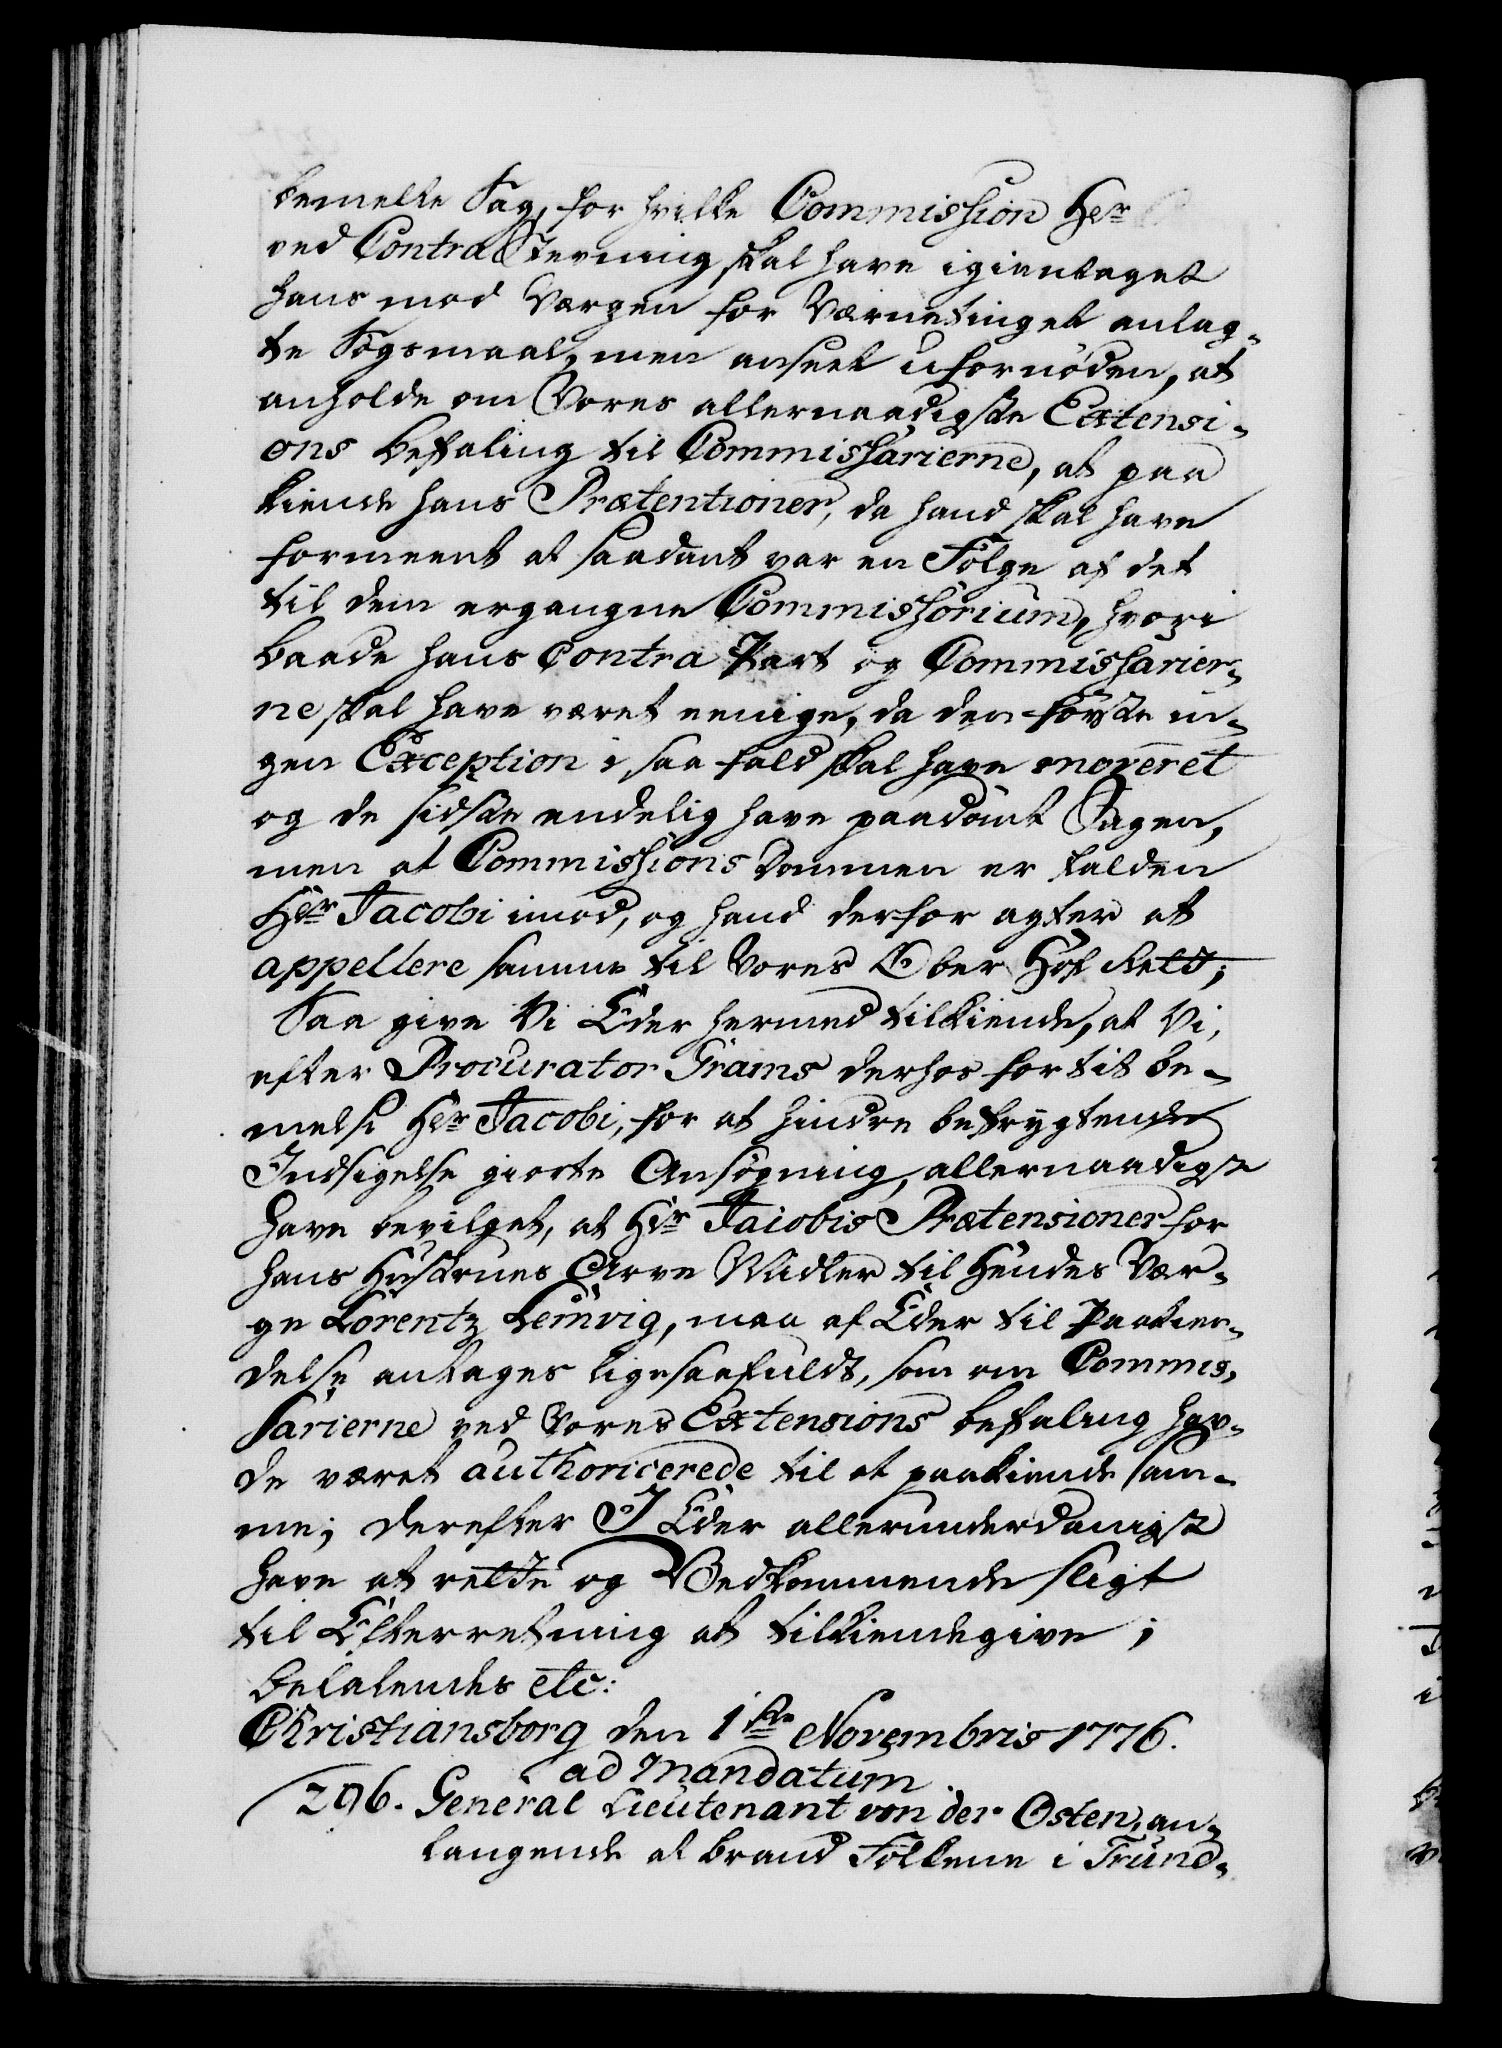 bemelte Sag, for hvilke Commission Hr
ved Contra Stevning skal have igientaget
hans mod Værgen for Værnetinget anlag-
te Søgsmaal, men anseet ufornöden, at
anholde om Vores allernaadigste Extensi-
ons Befaling til Commissarierne, at paa
kiende hans Prætentioner, da hand skal have
formeent at saadant var en Fölge af det
til dem ergangne Commissorium, hvori
baade hans Contra Part og Commissarier-
ne skal have været eenige, da den förste in-
gen Exception i saa fald skal have moveret
og de sidste endelig have paadömt Sagen,
men at Commissions Dommen er falden
Hr Jacobi imod, og hand derfor agter at
appellere samme til Vores Ober Hof Rett;
Saa give Vi Eder hermed tilkiende, at Vi,
efter Procurator Grams derhos for tit be-
melte Hr Jacobi, for at hindre befrygtende
Indsigelse giorte Ansögning, allernaadigst
have bevilget, at Hr Jaiobis Prætensioner for
hans Hustrues Arve Midler til Hendes Vær-
ge Lorentz Lemvig, maa af Eder til Paakien-
delse antages ligesaafuldt, som om Commis-
sarierne ved Vores Extensions Befaling hav-
de været authoricerede til at paakiende sam-
me; Derefter I Eder allerunderdanigst
have at rette og Vedkommende sligt
til Efterretning at tilkiendegive;
Befalendes etc:
Christiansborg den 1ste Novembris 1776.
ad Mandatum
296. General Lieutenant von der Osten, an-
langende at Brand Folkene i Trund-